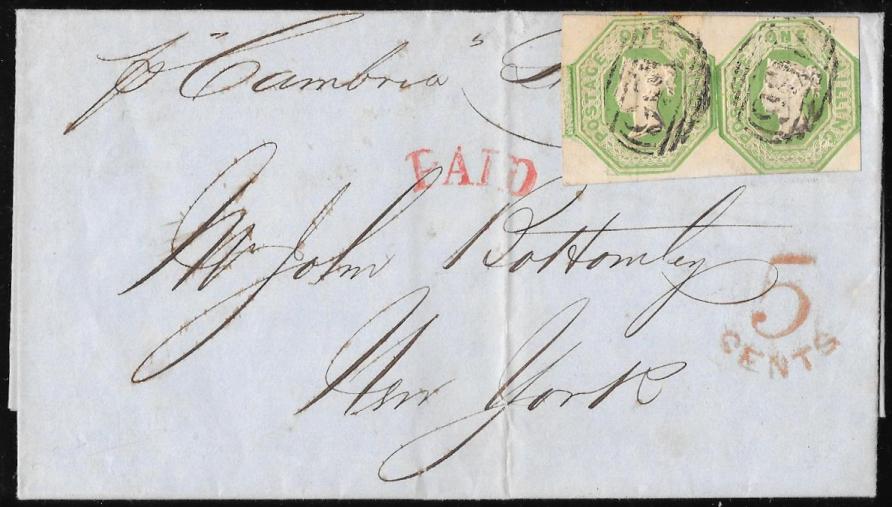 pr "Cambria"
POSTAGE ONE SHILLING
POSTAGE ONE SHILLING
PAID
Mr John Bottomley
New York
5
CENTS